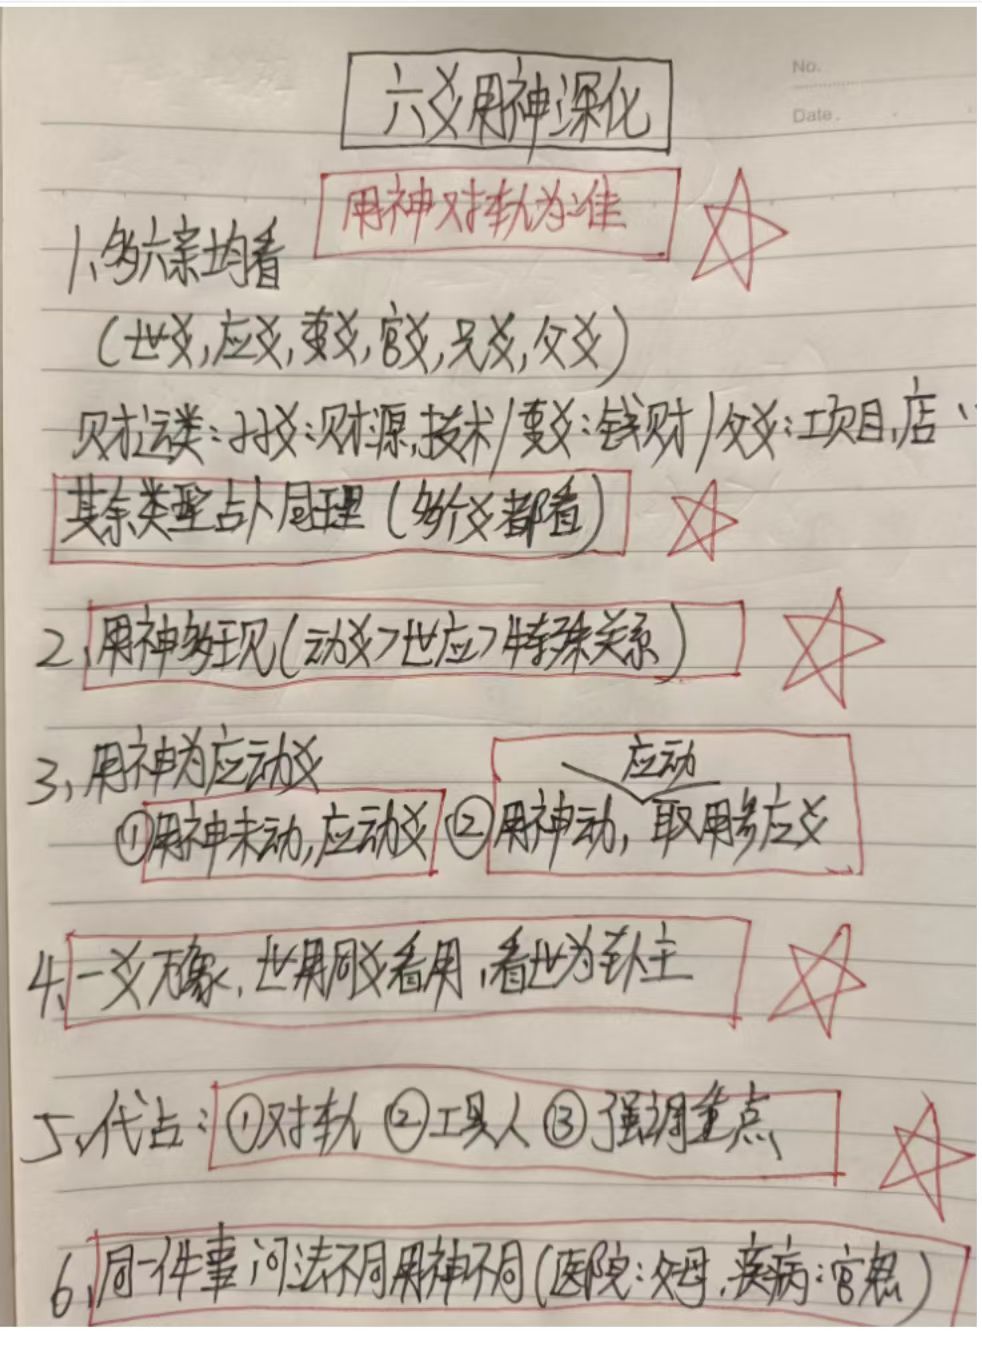 No.
Date.
六爻用神深化
用神对轨为准
1、多六亲均看
(世爻,应爻,妻爻,官爻,兄爻,父爻)
财运类:子爻:财源,技术/妻爻:钱财/父爻:工项目,店
其余类型占卜同理(多个爻都看)
2、用神多现(动爻>世应>特殊关系)
3、用神为应动爻
应动
①用神未动,应动爻 ②用神动,取用参应爻
4、一爻万象,世用同爻看用,看世为卦主
5、代占:①对轨 ②工具人 ③强调重点
6、同一件事问法不同用神不同(医院:父母,疾病:官鬼)